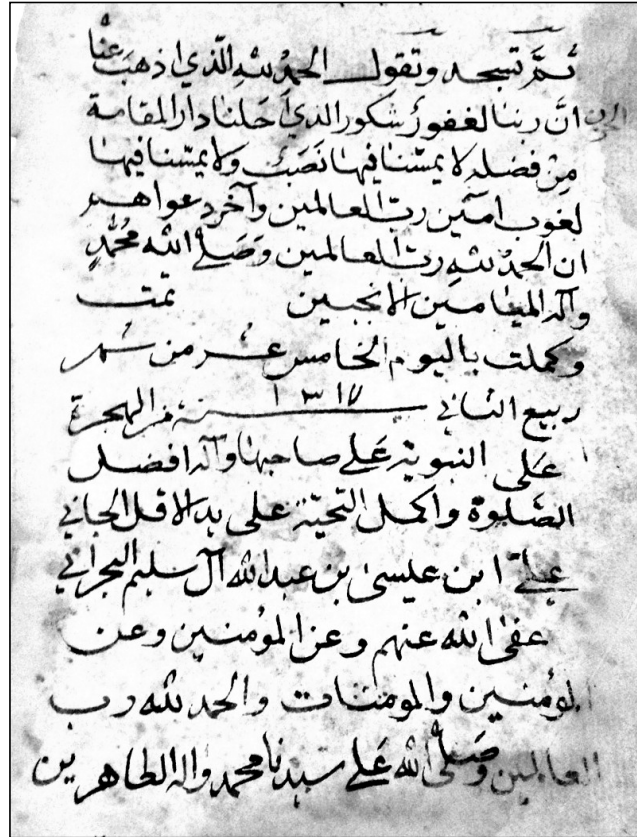 ثم تسجد وتقول الحمد لله الذي اذهب عنا
الحزن ان ربنا لغفور شكور الذي احلنا دار المقامة
من فضله لا يمسنا فيها نصب ولا يمسنا فيها
لغوب امين رب العالمين وآخر دعواهم
ان الحمد لله رب العالمين وصلى الله محمد
وآله الميامين الانجبين تمت
وكملت باليوم الخامس عشر من شهر
ربيع الثاني سنة ١٣١٧ من الهجرة
على النبوية على صاحبها وآله افضل
الصلوة واكمل التحية على يد الاقل الجاني
علي ابن عيسى بن عبدالله آل سليم البحراني
عفى الله عنهم وعن المؤمنين وعن
المؤمنين والمومنات والحمد لله رب
العالمين وصلى الله على سيدنا محمد واله الطاهرين